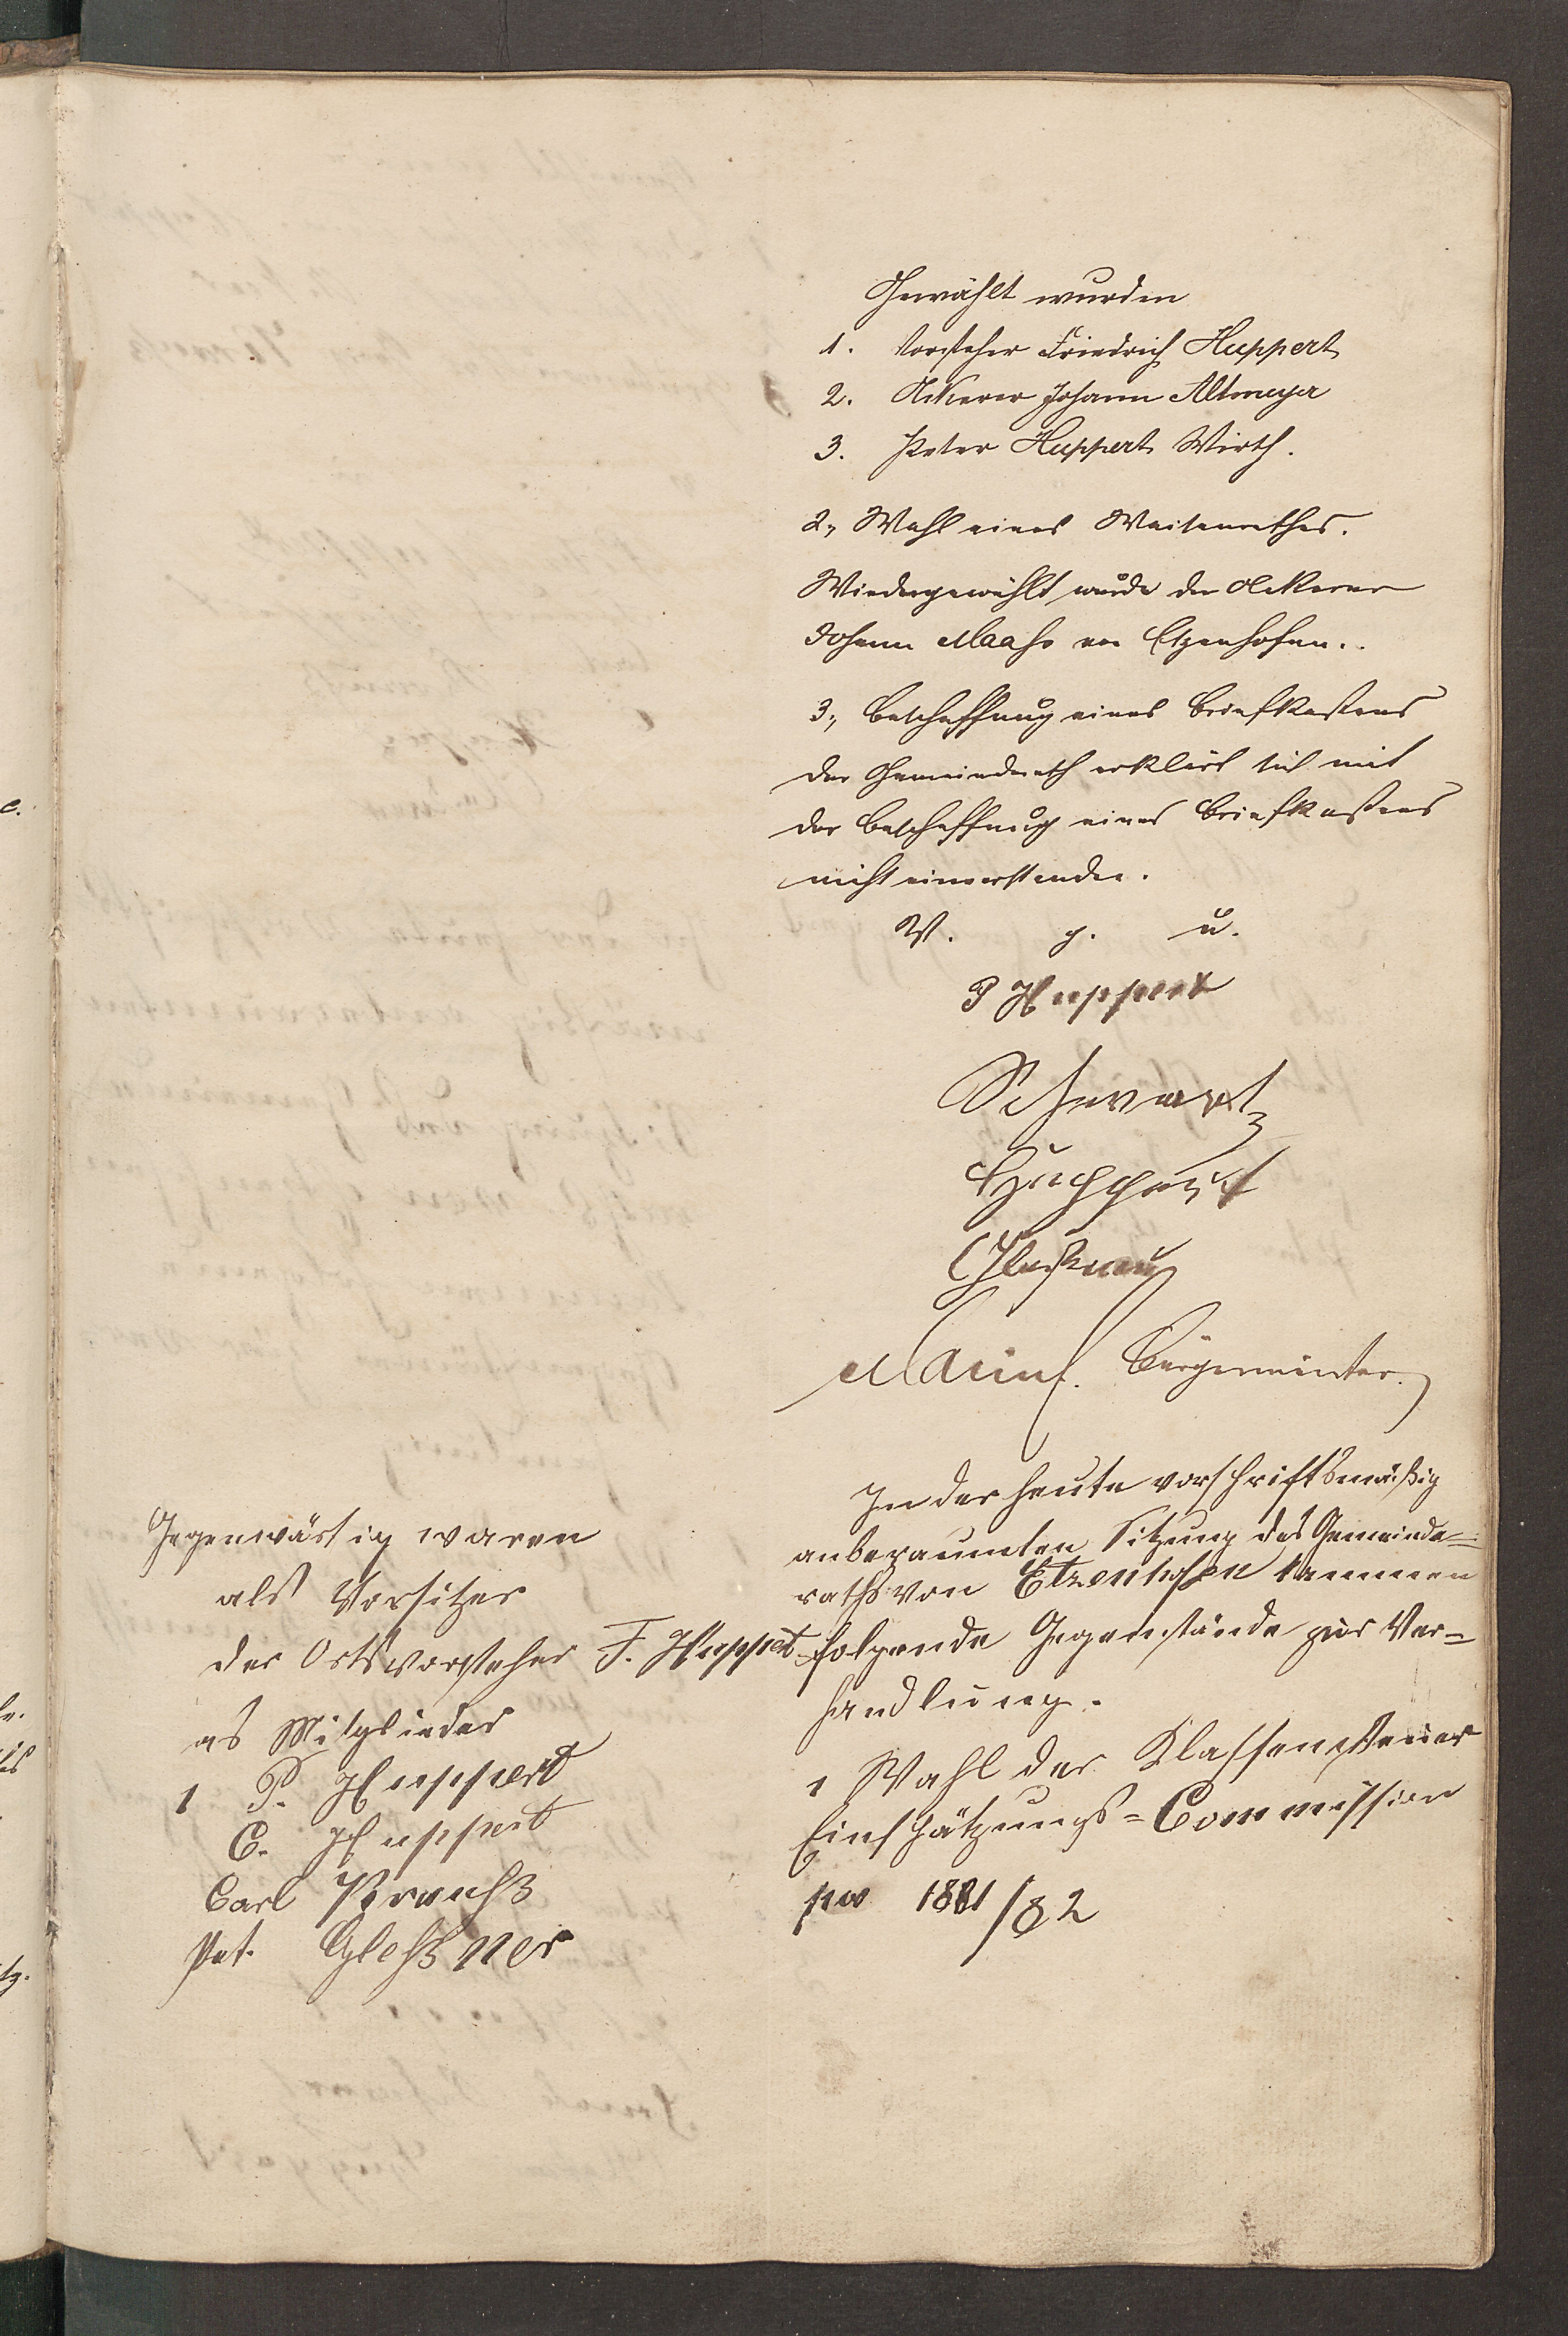 Gewählt wurden
1. Vorsteher Friedrich Huppert
2. Ackerer Johann Altmeyer
3. Peter Huppert Wirth.
2, Wahl eines Waisenrathes.
Wiedergewählt wurde der Ackerer
Johann Maahs von Etzenhofen.
3, Beschaffung eines Briefkastens
Der Gemeinderath erklärt sich mit
der Beschaffung eines Briefkastens
nicht einverstanden.
V. g. u.
P Huppert
Schwartz
Huppert
Bürgermeister.
Gegenwärtig waren
als Vorsitzer
der Ortsvorsteher F. Huppert
als Mitglieder
1 P. Huppert
C. Huppert
Carl
Pet. Gleßner
In der heute vorschriftsmäßig
anberaumten Sitzung des Gemeinde=
raths von Etzenhofen kammen
folgende Gegenstände zur Ver=
handlung.
1 Wahl der Klassensteuer
Einschätzungs=Commission
pro 1881/82